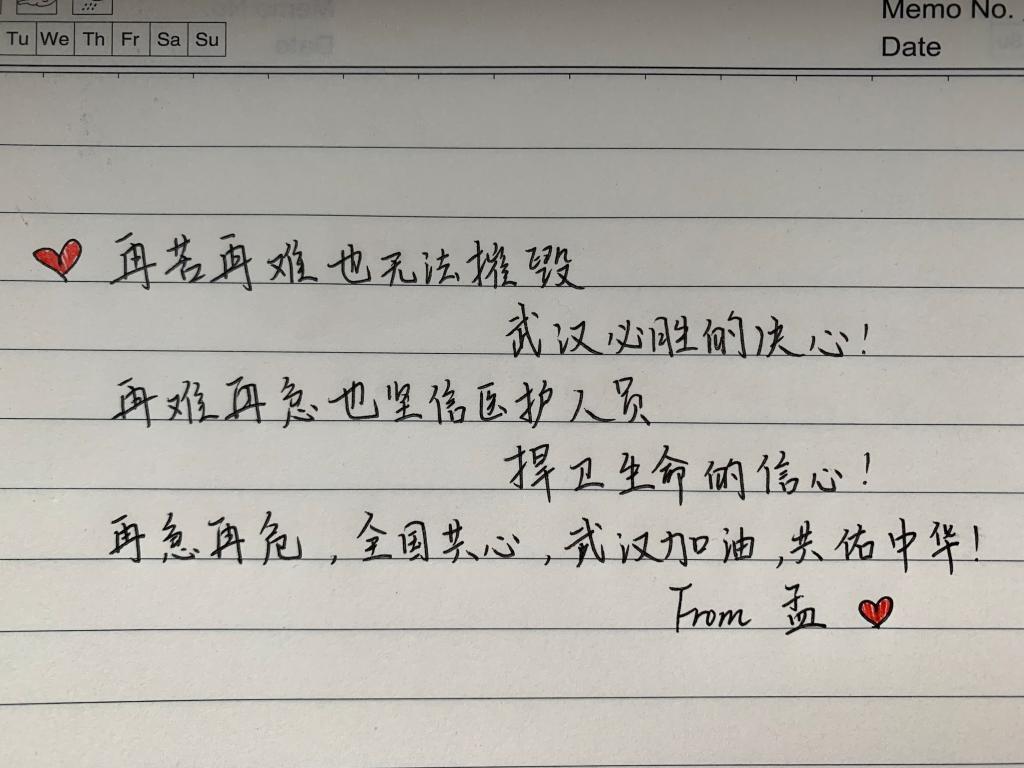 Memo No.
Tu We Th Fr Sa Su
Date
再苦再难也无法摧毁
武汉必胜的决心!
再难再急也坚信医护人员
捍卫生命的信心!
再急再危,全国共心,武汉加油,共佑中华!
From 孟